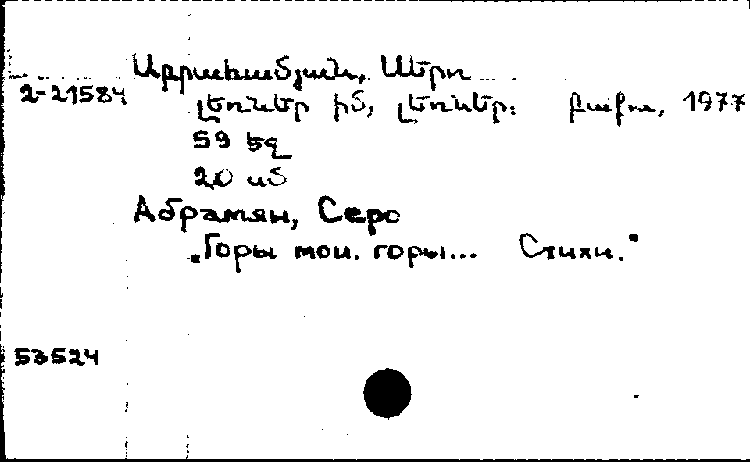 Աբրահամյան, Սերո
2-21584
լեռներ իմ, լեռներ: Բաքու, 1977
59 եզ
20 սմ
Абрамян, Серо
„Горы мои. горы... Стихи."
53524